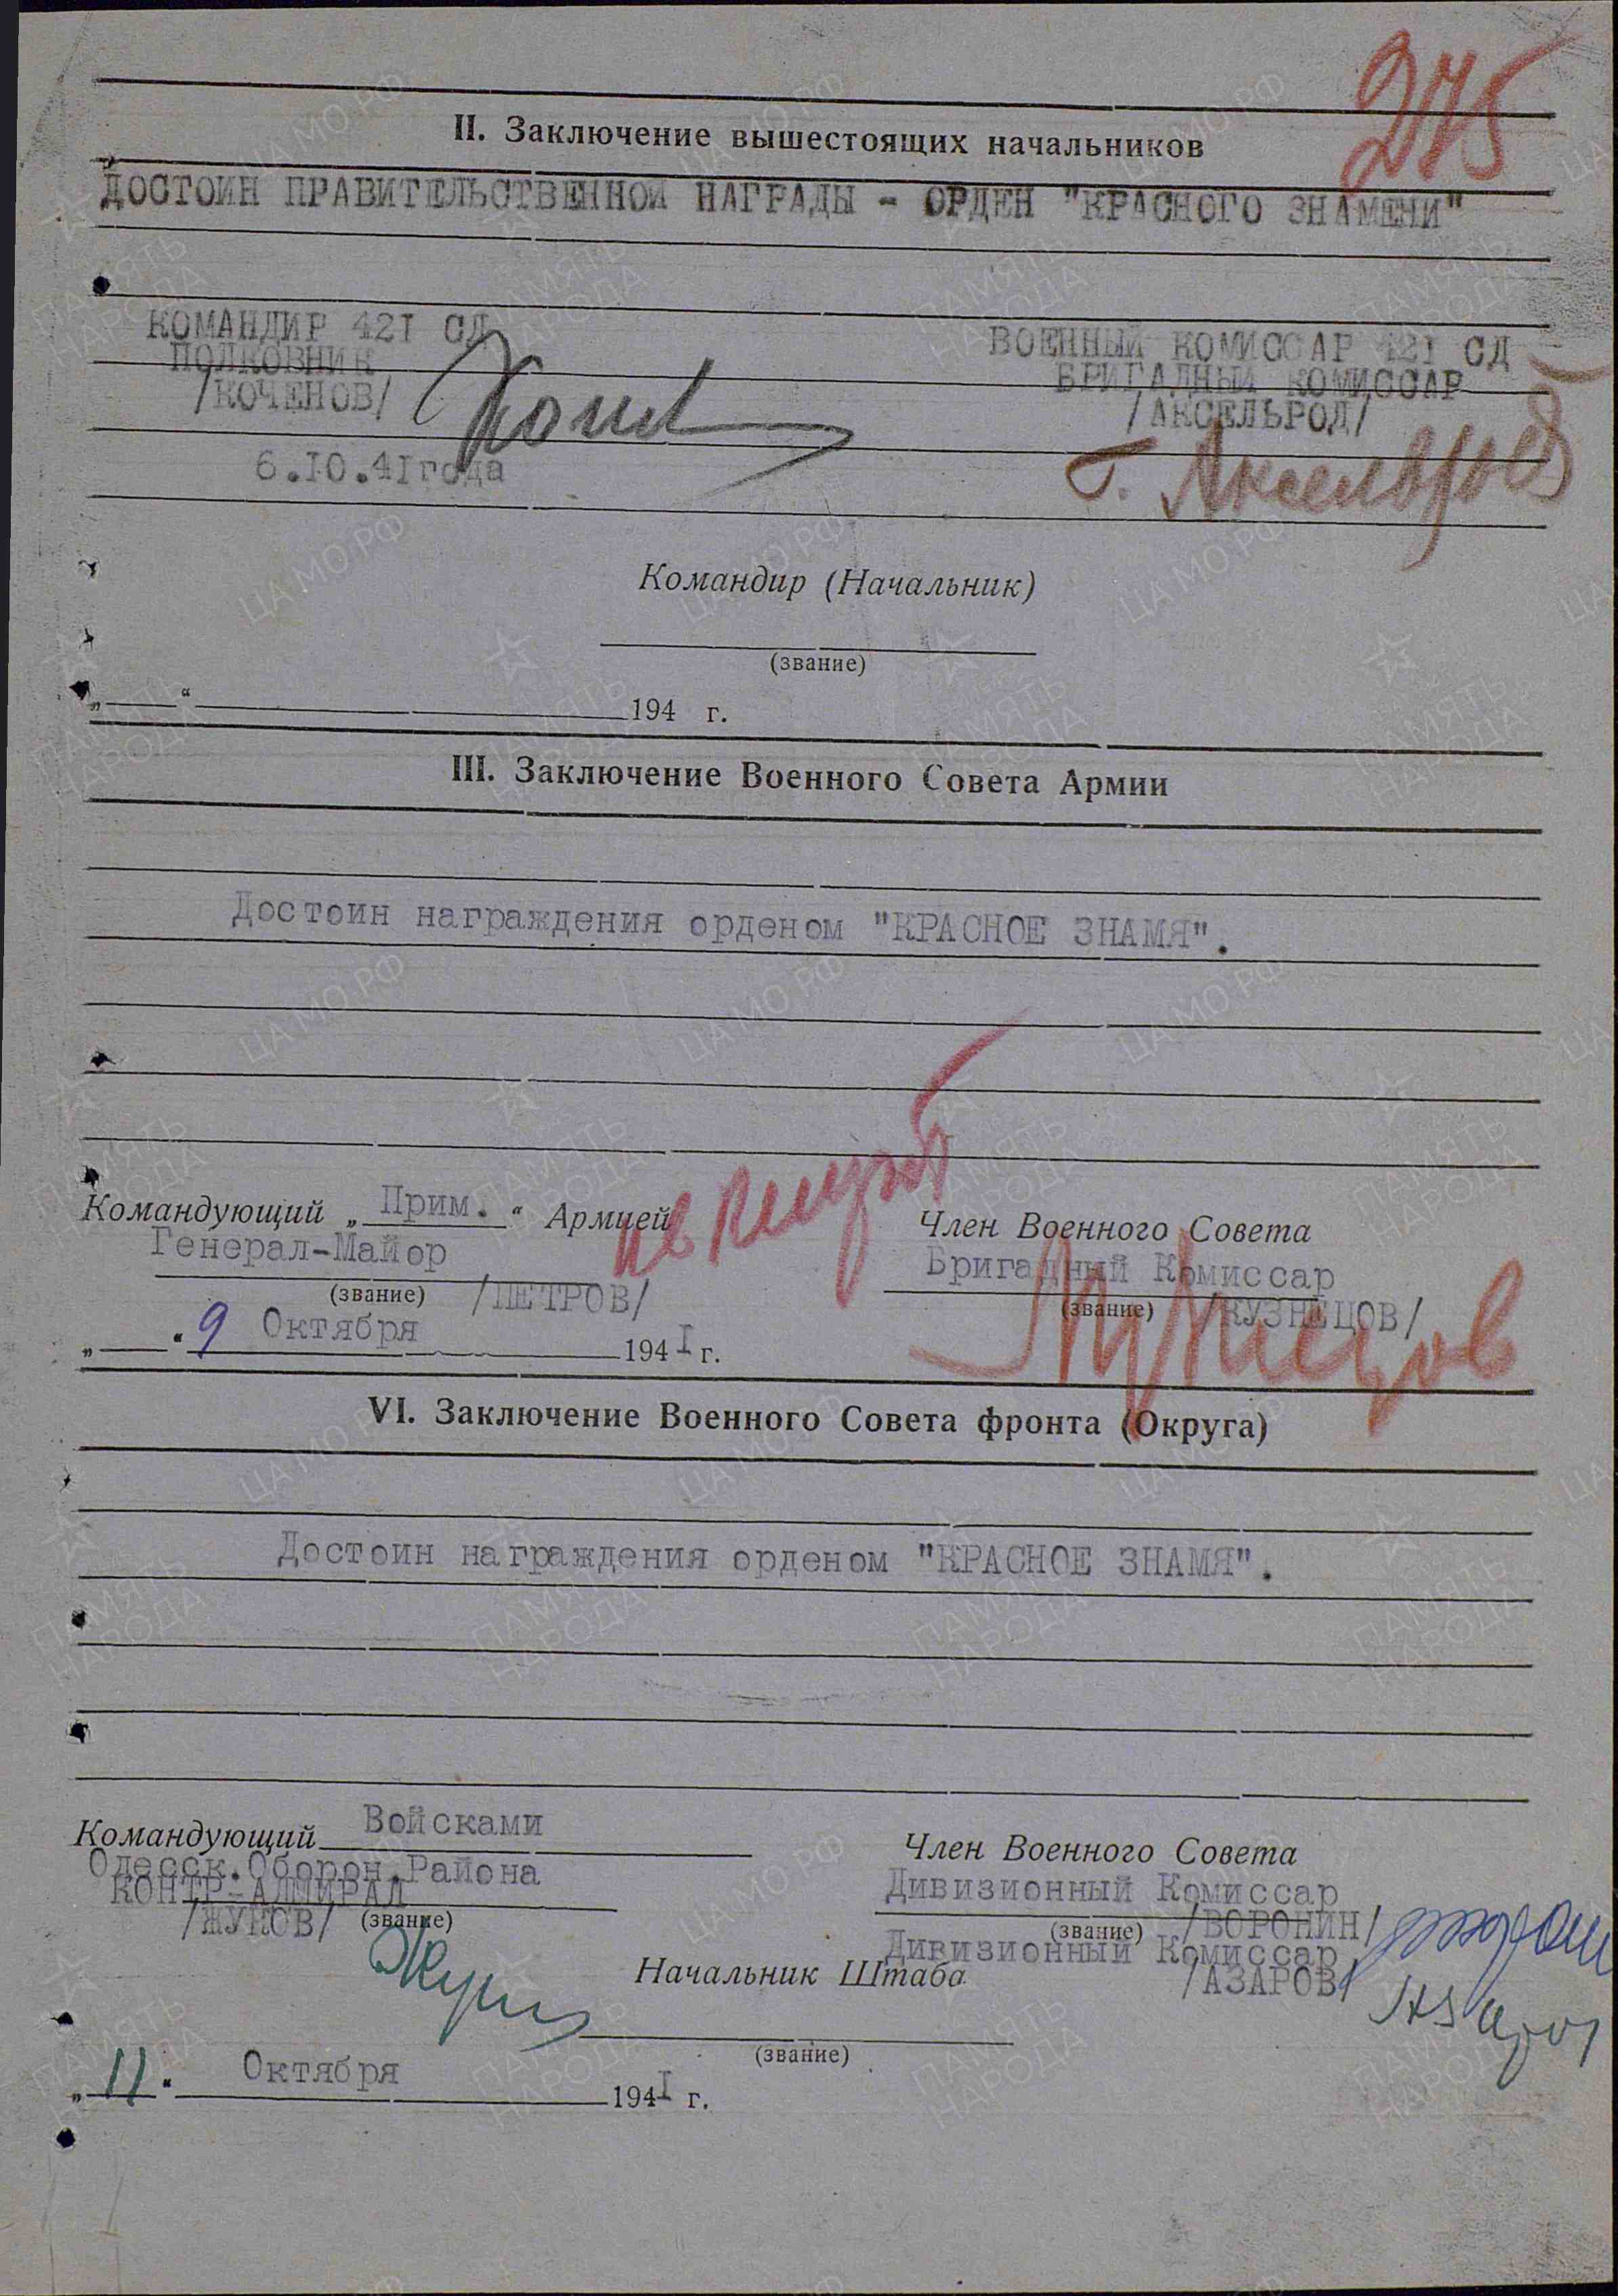 275
II. Заключение вышестоящих начальников
ДОСТОИН ПРАВИТЕЛЬСТВЕННОЙ НАГРАДЫ - ОРДЕН "КРАСНОГО ЗНАМЕНИ"
КОМАНДИР 421 СД
ПОЛКОВНИК
/КОЧЕНОВ/
6.10.41года
ВОЕННЫЙ КОМИССАР 421 СД
БРИГАДНЫЙ КОМИССАР
/АКСЕЛЬРОД/
Г. Аксельрод
Командир (Начальник)
(звание)
„ “ 194 г.
III. Заключение Военного Совета Армии
Достоин награждения орденом "КРАСНОЕ ЗНАМЯ".
Командующий „Прим.“ Армией
Генерал-Майор
(звание) /ПЕТРОВ/
„ “ 9 Октября 194I г.
Член Военного Совета
Бригадный Комиссар
(звание) /КУЗНЕЦОВ/
Кузнецов
VI. Заключение Военного Совета фронта (Округа)
Достоин награждения орденом "КРАСНОЕ ЗНАМЯ".
Командующий Войсками
Одесск.Оборон.Района
КОНТР-АДМИРАЛ
/ЖУКОВ/ (звание)
Член Военного Совета
Дивизионный Комиссар
(звание) /ВОРОНИН/
Дивизионный Комиссар
/АЗАРОВ/
Начальник Штаба
(звание)
„11“ Октября 194I г.
ЦА МО РФ
ПАМЯТЬ
НАРОДА